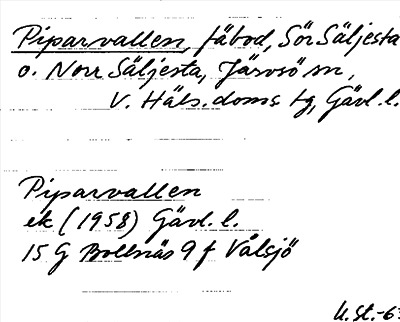 Piparvallen, fäbod, Sör Säljesta
o. Norr Säljesta, Järvsö sn,
V. Häls. doms tg, Gävl. l.
Piparvallen
ek (1958) Gävl. l.
15 G Bollnäs 9 f Valsjö
U. St. -63